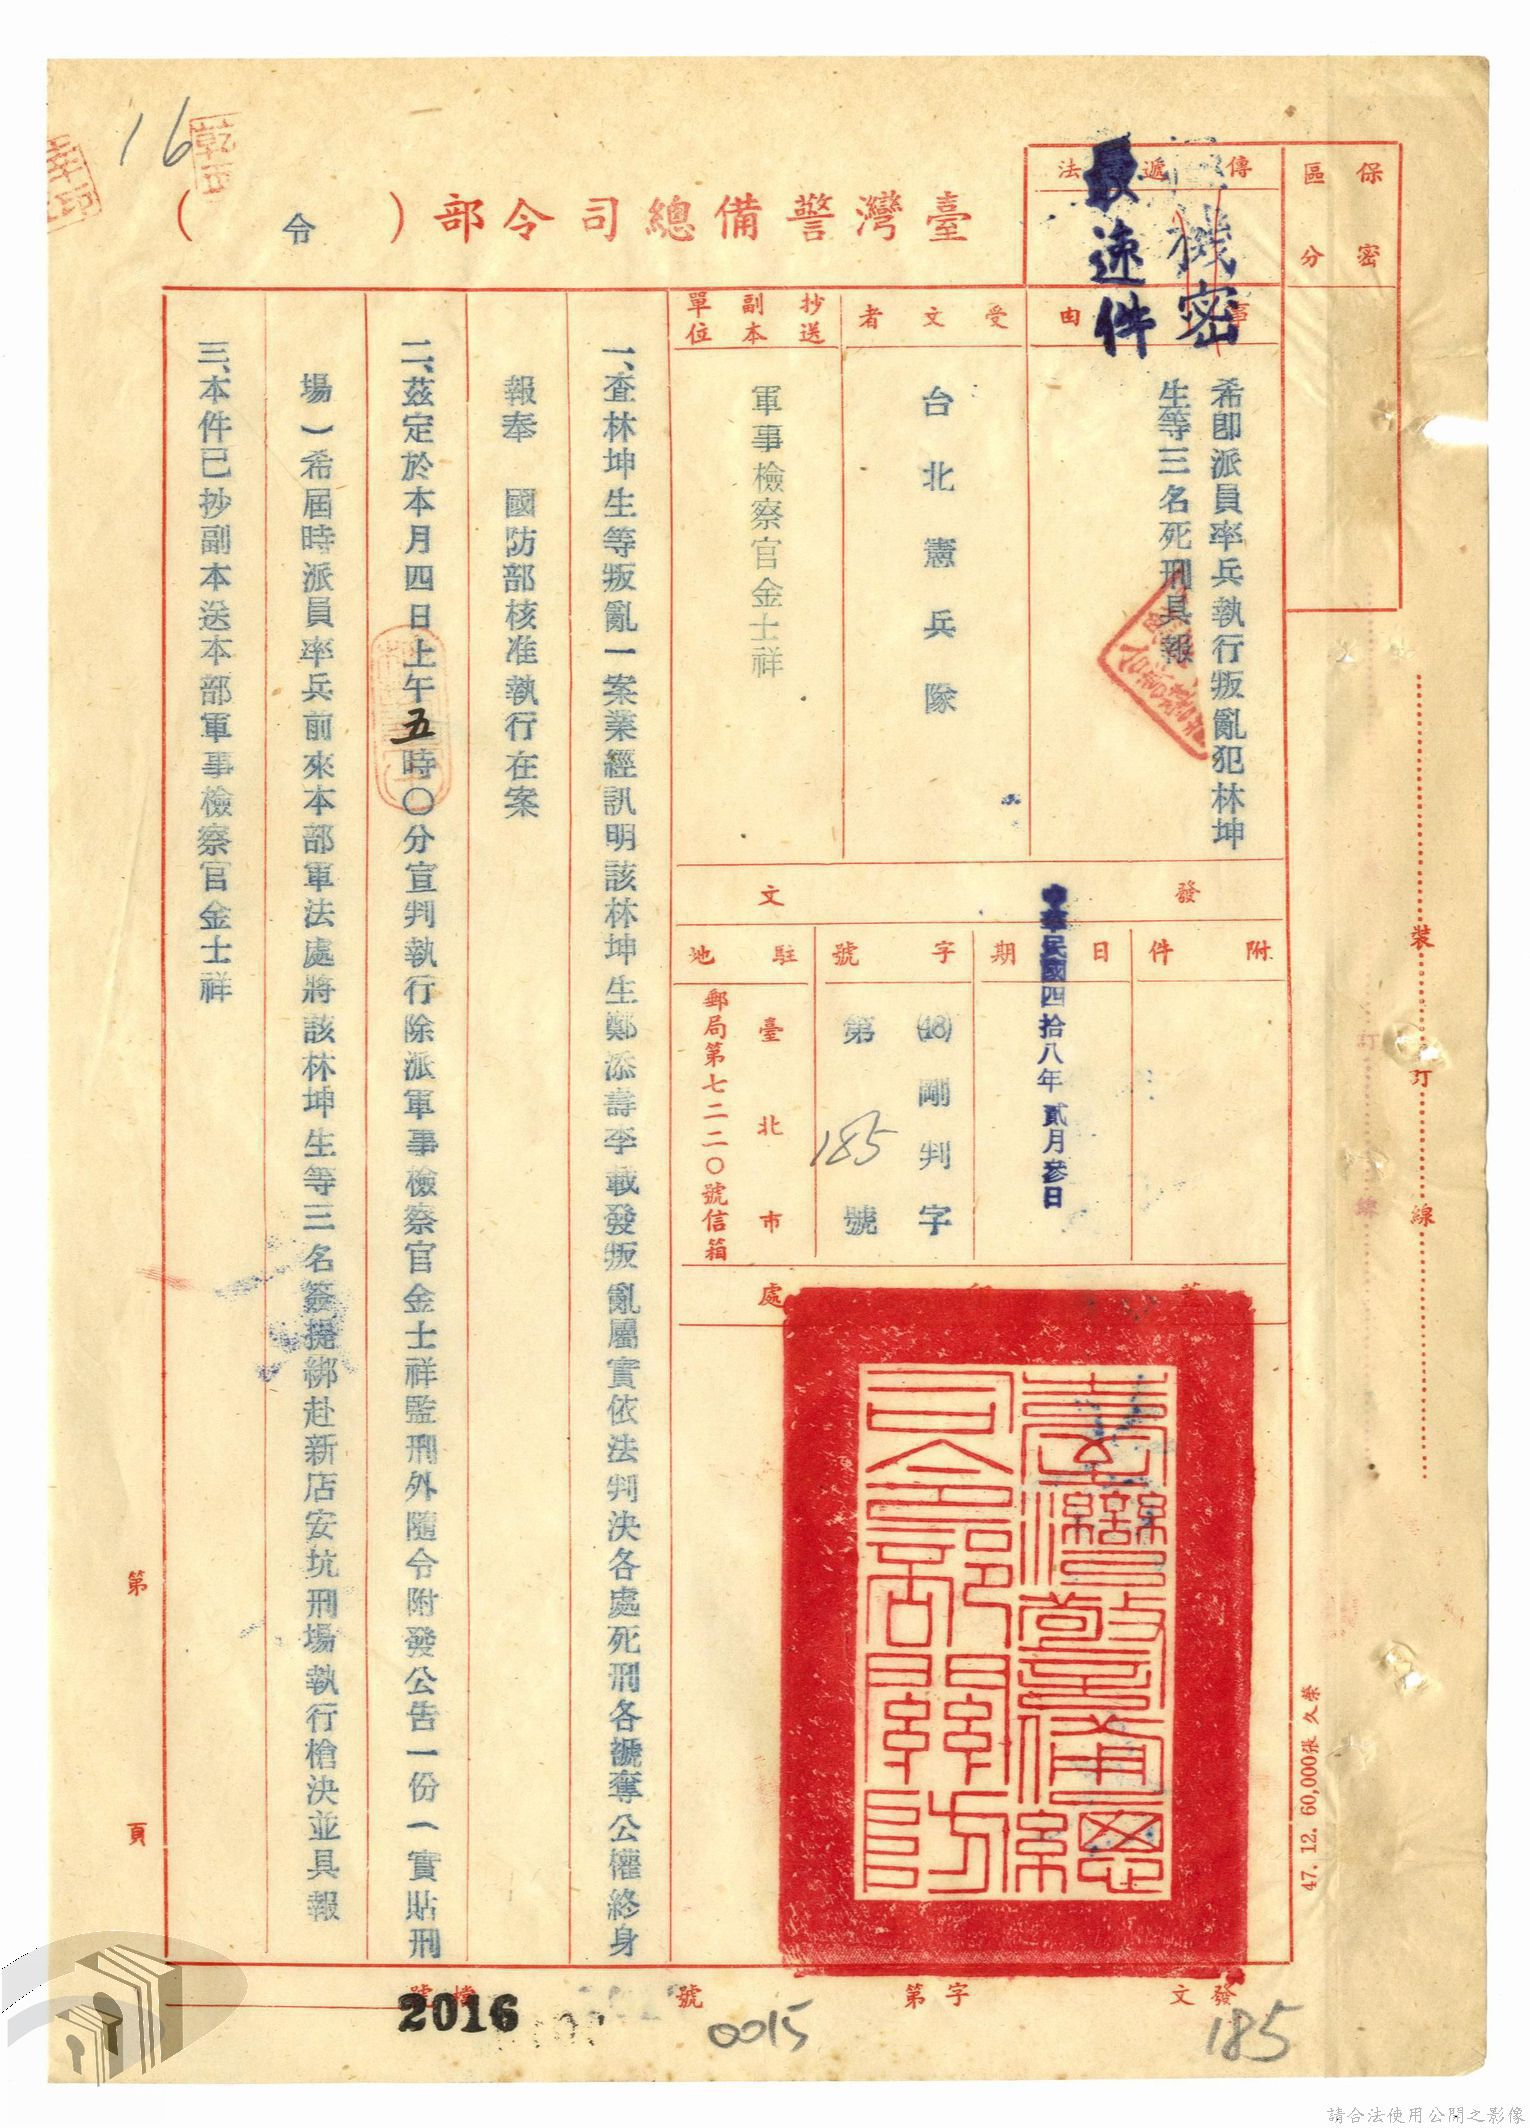 16
乾
臺灣警備總司令部（令）
保密
區分
傳遞法
機密
最速件
事由
希即派員率兵執行叛亂犯林坤
生等三名死刑具報
受文者
台北憲兵隊
抄送
副本
單位
軍事檢察官金士祥
發文
附件
日期
中華民國四拾八年貳月參日
字號
(48)剛判字
第185號
駐地
臺北市
郵局第七二二〇號信箱
蓋印處
臺灣警備總
司令部關防
一、查林坤生等叛亂一案業經訊明該林坤生鄭添壽李載發叛亂屬實依法判決各處死刑各褫奪公權終身
報奉 國防部核准執行在案
二、茲定於本月四日上午五時〇分宣判執行除派軍事檢察官金士祥監刑外隨令附發公告一份（實貼刑
場）希屆時派員率兵前來本部軍法處將該林坤生等三名簽提綁赴新店安坑刑場執行槍決並具報
三、本件已抄副本送本部軍事檢察官金士祥
裝訂線
47. 12. 60,000張 久榮
第頁
發文字第號
檔號
185
0015
2016
請合法使用公開之影像